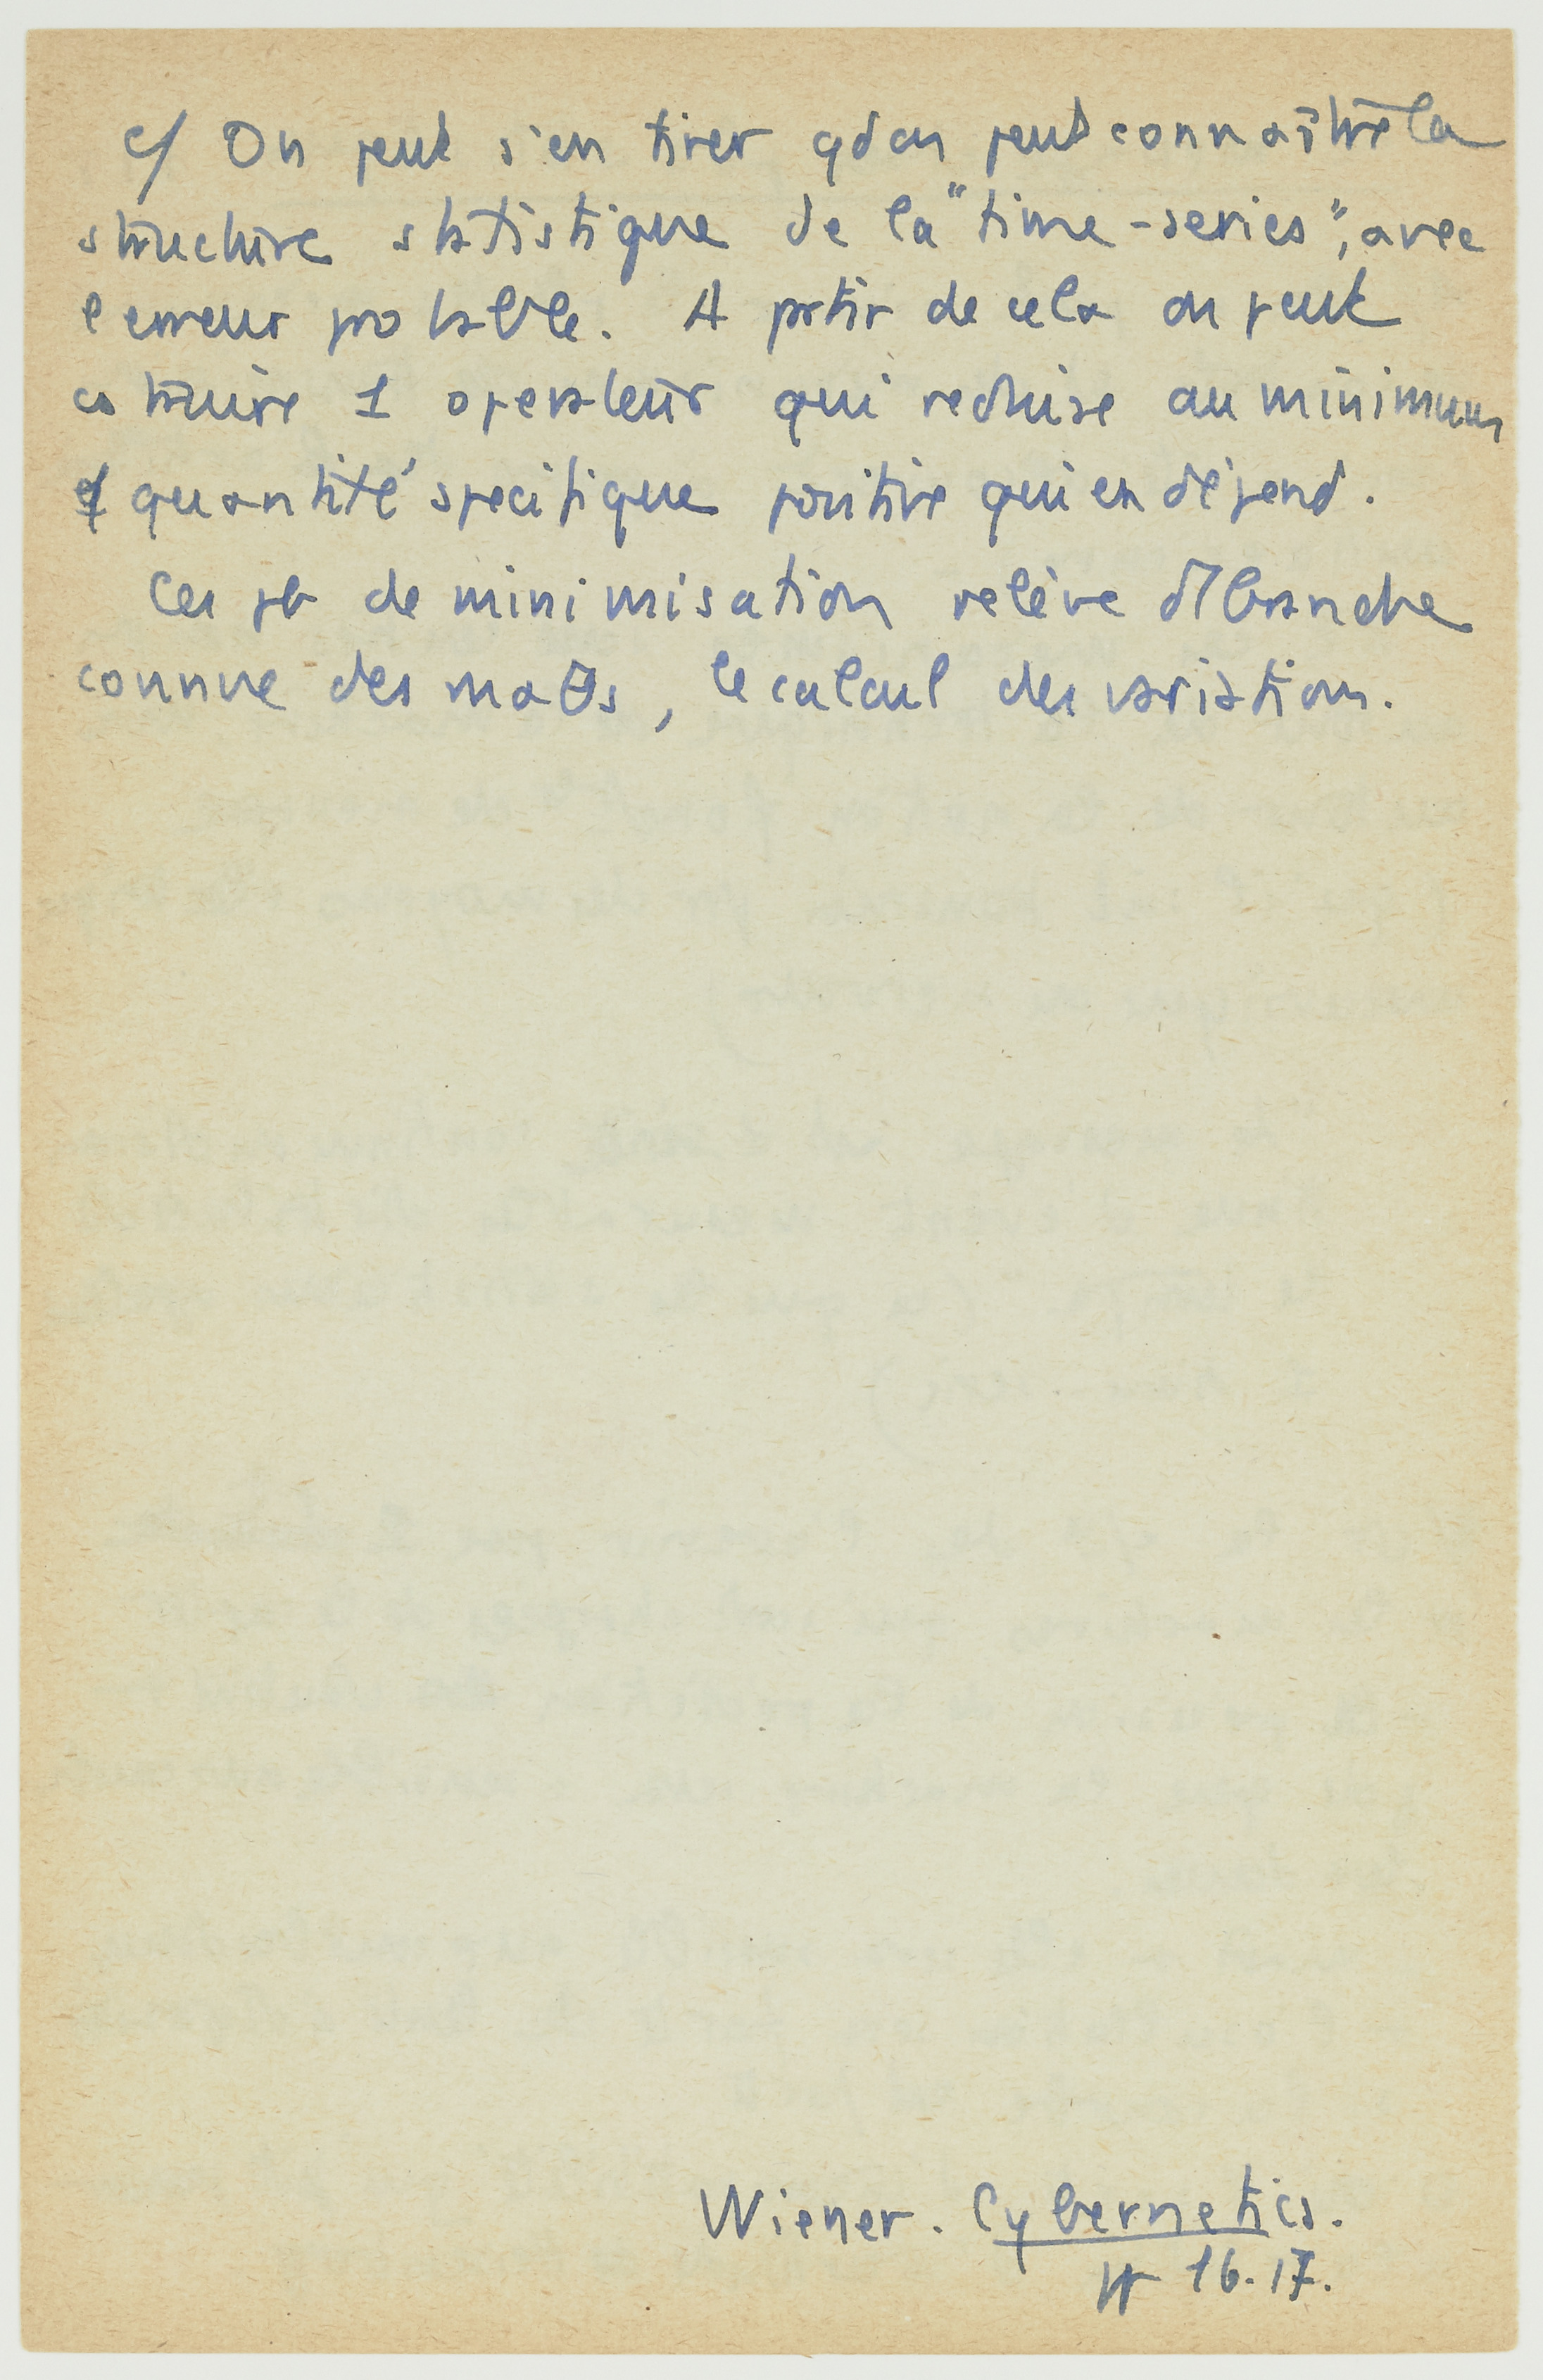 c/ On peut s'en tirer qd on peut connaître la
structure statistique de la "time-series", avec
l'erreur probable. A partir de cela on peut
cstruire 1 operateur qui reduise au minimum
quantité specifique positive qui en dépend.
Ces pb de minimisation relève branche
connue des maθs, le calcul des variations.
Wiener. Cybernetics.
16.17.